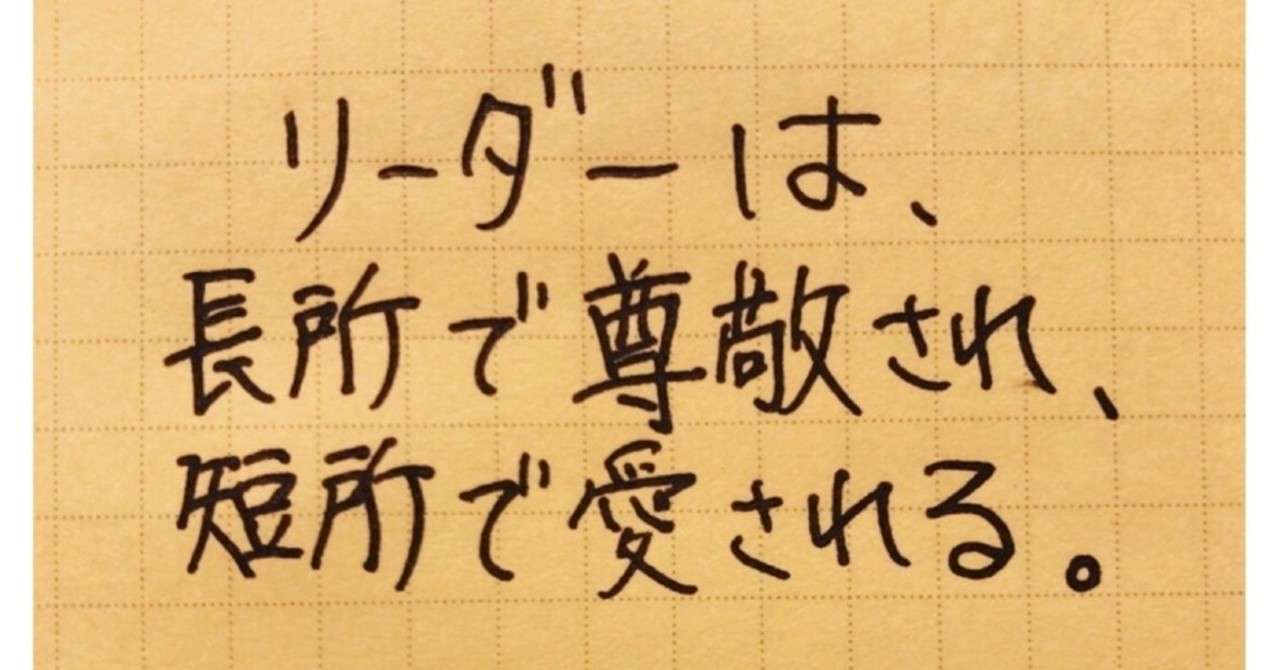 リーダーは、
長所で尊敬され、
短所で愛される。